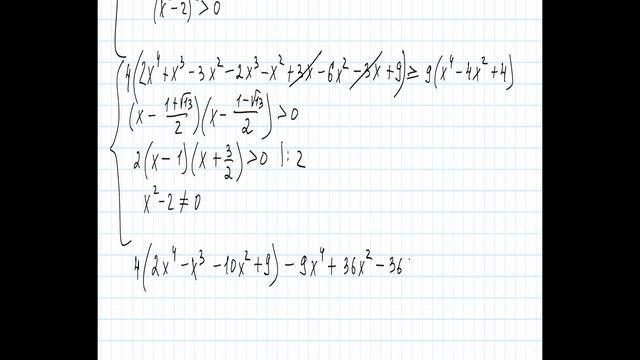 (x²-2)²>0
4(2x⁴+x³-3x²-2x³-x²+3x-6x²-3x+9)≥9(x⁴-4x²+4)
(x-\frac{1+√13}{2})(x-\frac{1-√13}{2})>0
2(x-1)(x+\frac{3}{2})>0 |:2
x²-2≠0
4(2x⁴-x³-10x²+9)-9x⁴+36x²-36